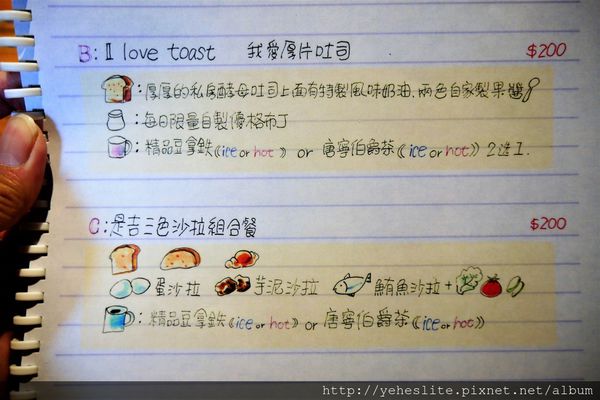 B: I love toast 我愛厚片吐司 $200
: 厚厚的私房酵母吐司上面有特製風味奶油.兩色自家製果醬
: 每日限量自製優格布丁
: 精品豆拿鐵《ice or hot》 or 唐寧伯爵茶《ice or hot》 2選1.
C: 是吉三色沙拉組合餐 $200
蛋沙拉 芋泥沙拉 鮪魚沙拉+
: 精品豆拿鐵《ice or hot》 or 唐寧伯爵茶《ice or hot》
http://yeheslite.pixnet.net/album